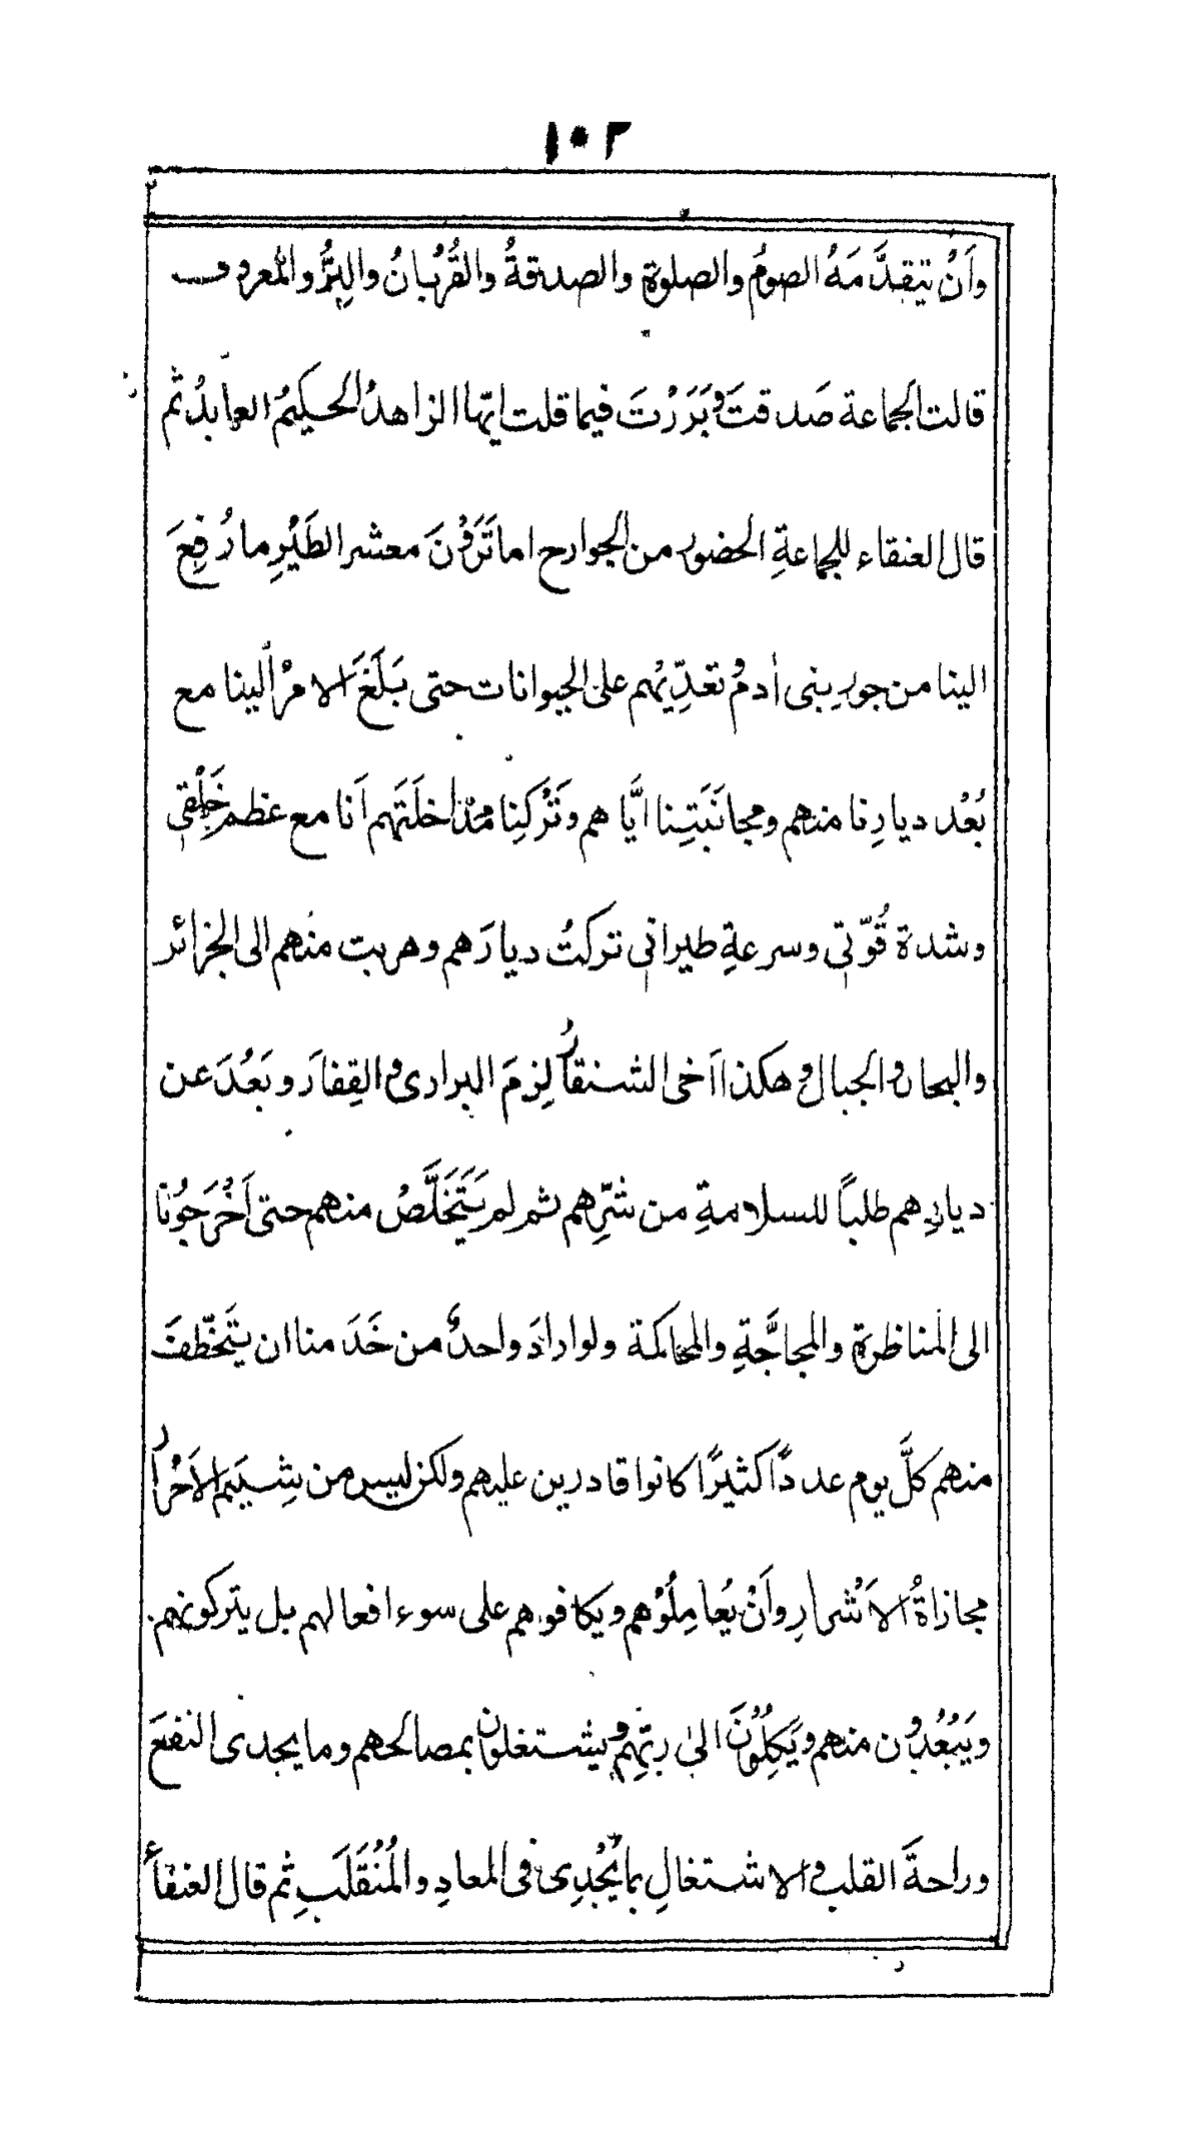 ١٠٢
وأَنْ يتقدَّمَهُ الصومُ والصلوة والصدقةُ والقُرْبانُ والبِرُّ والمعروف
قالت الجماعة صَدقتَ وبَرَرْتَ فيما قلت ايّها الزاهدُ الحكيمُ العابدُ ثم
قال العنقاء للجماعةِ الحضور من الجوارح اما تَرَوْنَ معشر الطَيْرِ ما رُفِعَ
الينا من جور بنى أدم وتعدِّيهم على الحيوانات حتى بَلَغَ الامرُ الينا مع
بُعْد ديارِنا منهم ومجانَبَتِنا ايَّاهم وتَرْكِنا مداخلَتَهم اَنا مع عظم خَلْقى
وشدة قُوّتى وسرعةِ طيرانى تركتُ ديارَهم وهربت منهم الى الجزائر
والبحار والجبال وهكذا اَخى الشنقارُ لزِمَ البرارى والقِفارَ وبَعُدَ عن
ديارِهم طلباً للسلامةِ من شرِّهم ثم لم يَتَخَلَّصُ منهم حتى اَخْرَجُونا
الى المناظرة والمحاجَّةِ والمحاكمة ولو ارادَ واحدٌ من خَدَمنا ان يتَخَطّفَ
منهم كلَّ يوم عددًا كثيرًا كانوا قادرين عليهم ولكن ليس من شِيَمِ الاَحْرار
مجازاةُ الاَشرارِ واَنْ يُعامِلُوْهم ويكافوهم على سوء افعالهم بل يتركونهم
ويَبْعُدُون منهم ويَكِلُوْنَ الىٰ ربّهِم ويشتغلون بمصالحهم وما يجدى النفعَ
وراحةَ القلب والاشتغالِ بما يُجْدِى فى المعادِ والمُنْقَلَبِ ثم قال العنقاءُ